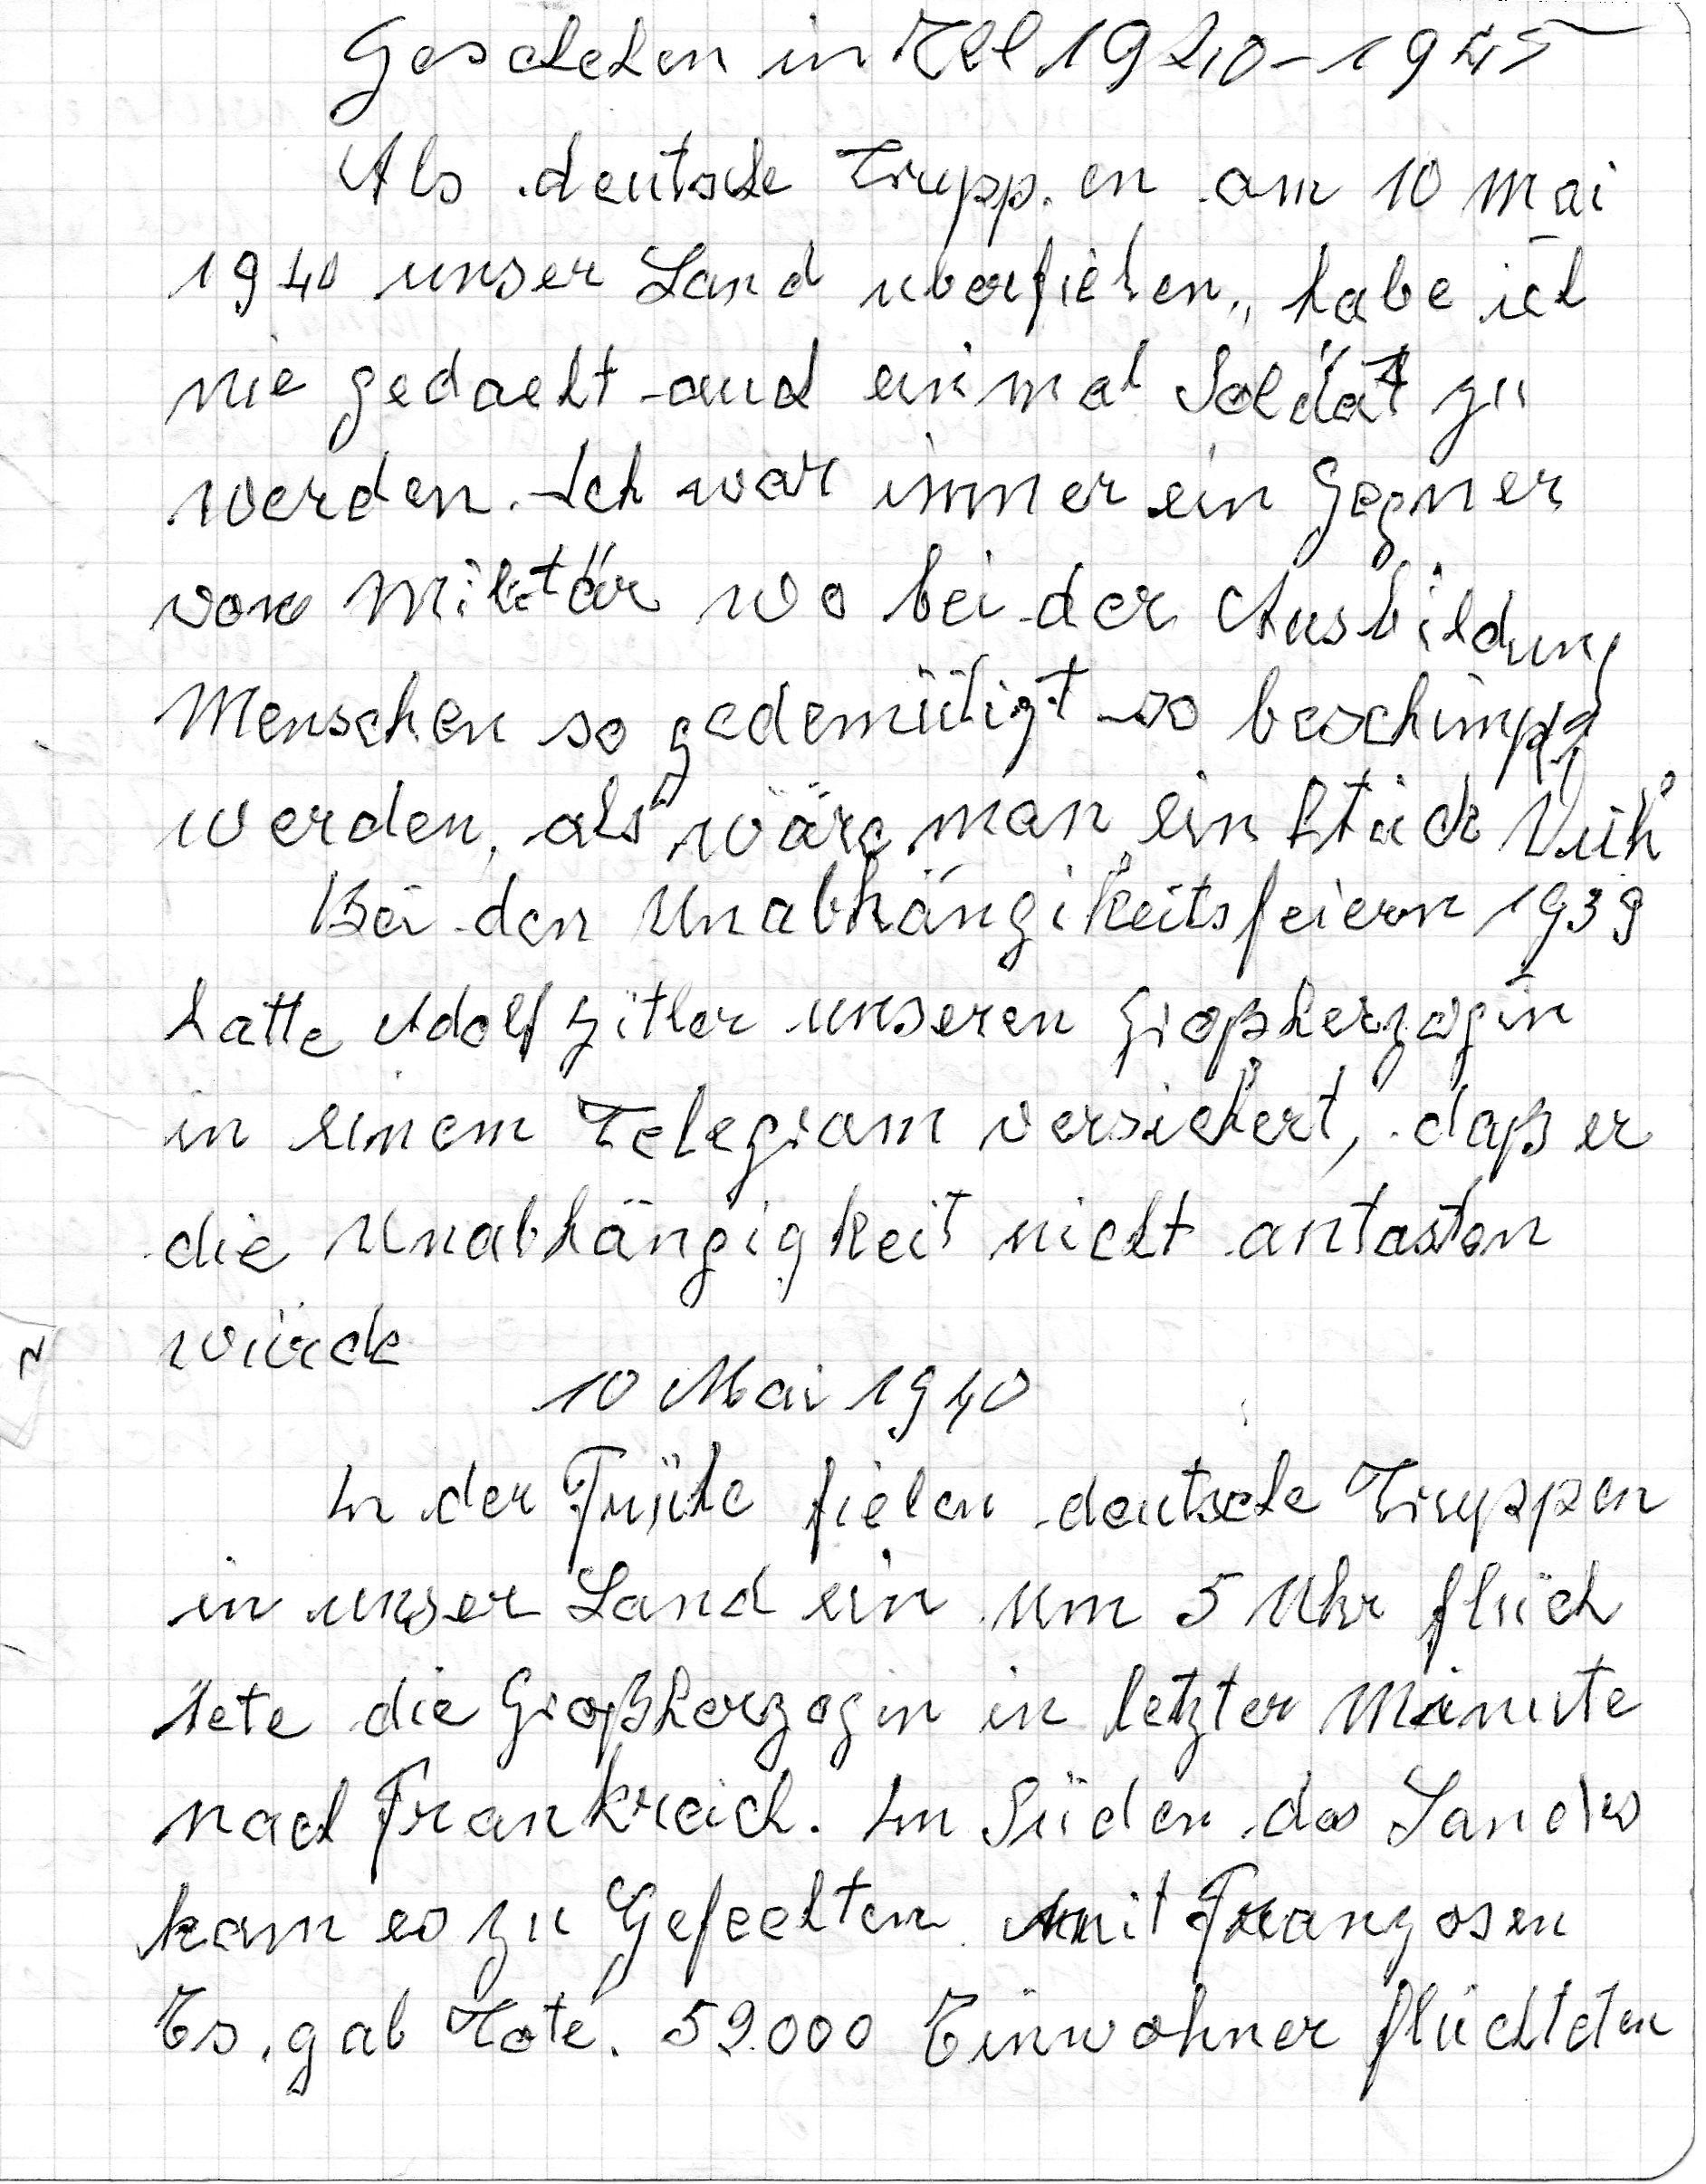 Geschehen in Kll 1940-1945
Als deutsche Truppen am 10 Mai
1940 unser Land uberfielen, habe ich
nie gedacht auch einmal Soldat zu
werden. Ich war immer ein Gegner
vom Militär wo bei der Ausbildung
Menschen so gedemütigt so beschimpft
werden, als wäre man ein Stück Vieh
Bei den Unabhängikeitsfeiern 1939
hatte Adolf Hitler unseren Großherzogin
in einem Telegram versichert, daß er
die Unabhängigkeit nicht antasten
würde
10 Mai 1940
In der Frühe fielen deutsche Truppen
in unser Land ein um 5 Uhr flüch
tete die Großherzogin in letzter Minute
nach Frankreich. Im Süden des Landes
kam es zu Gefechten mit Franzosen
Es gab Tote. 59.000 Einwohner flüchteten